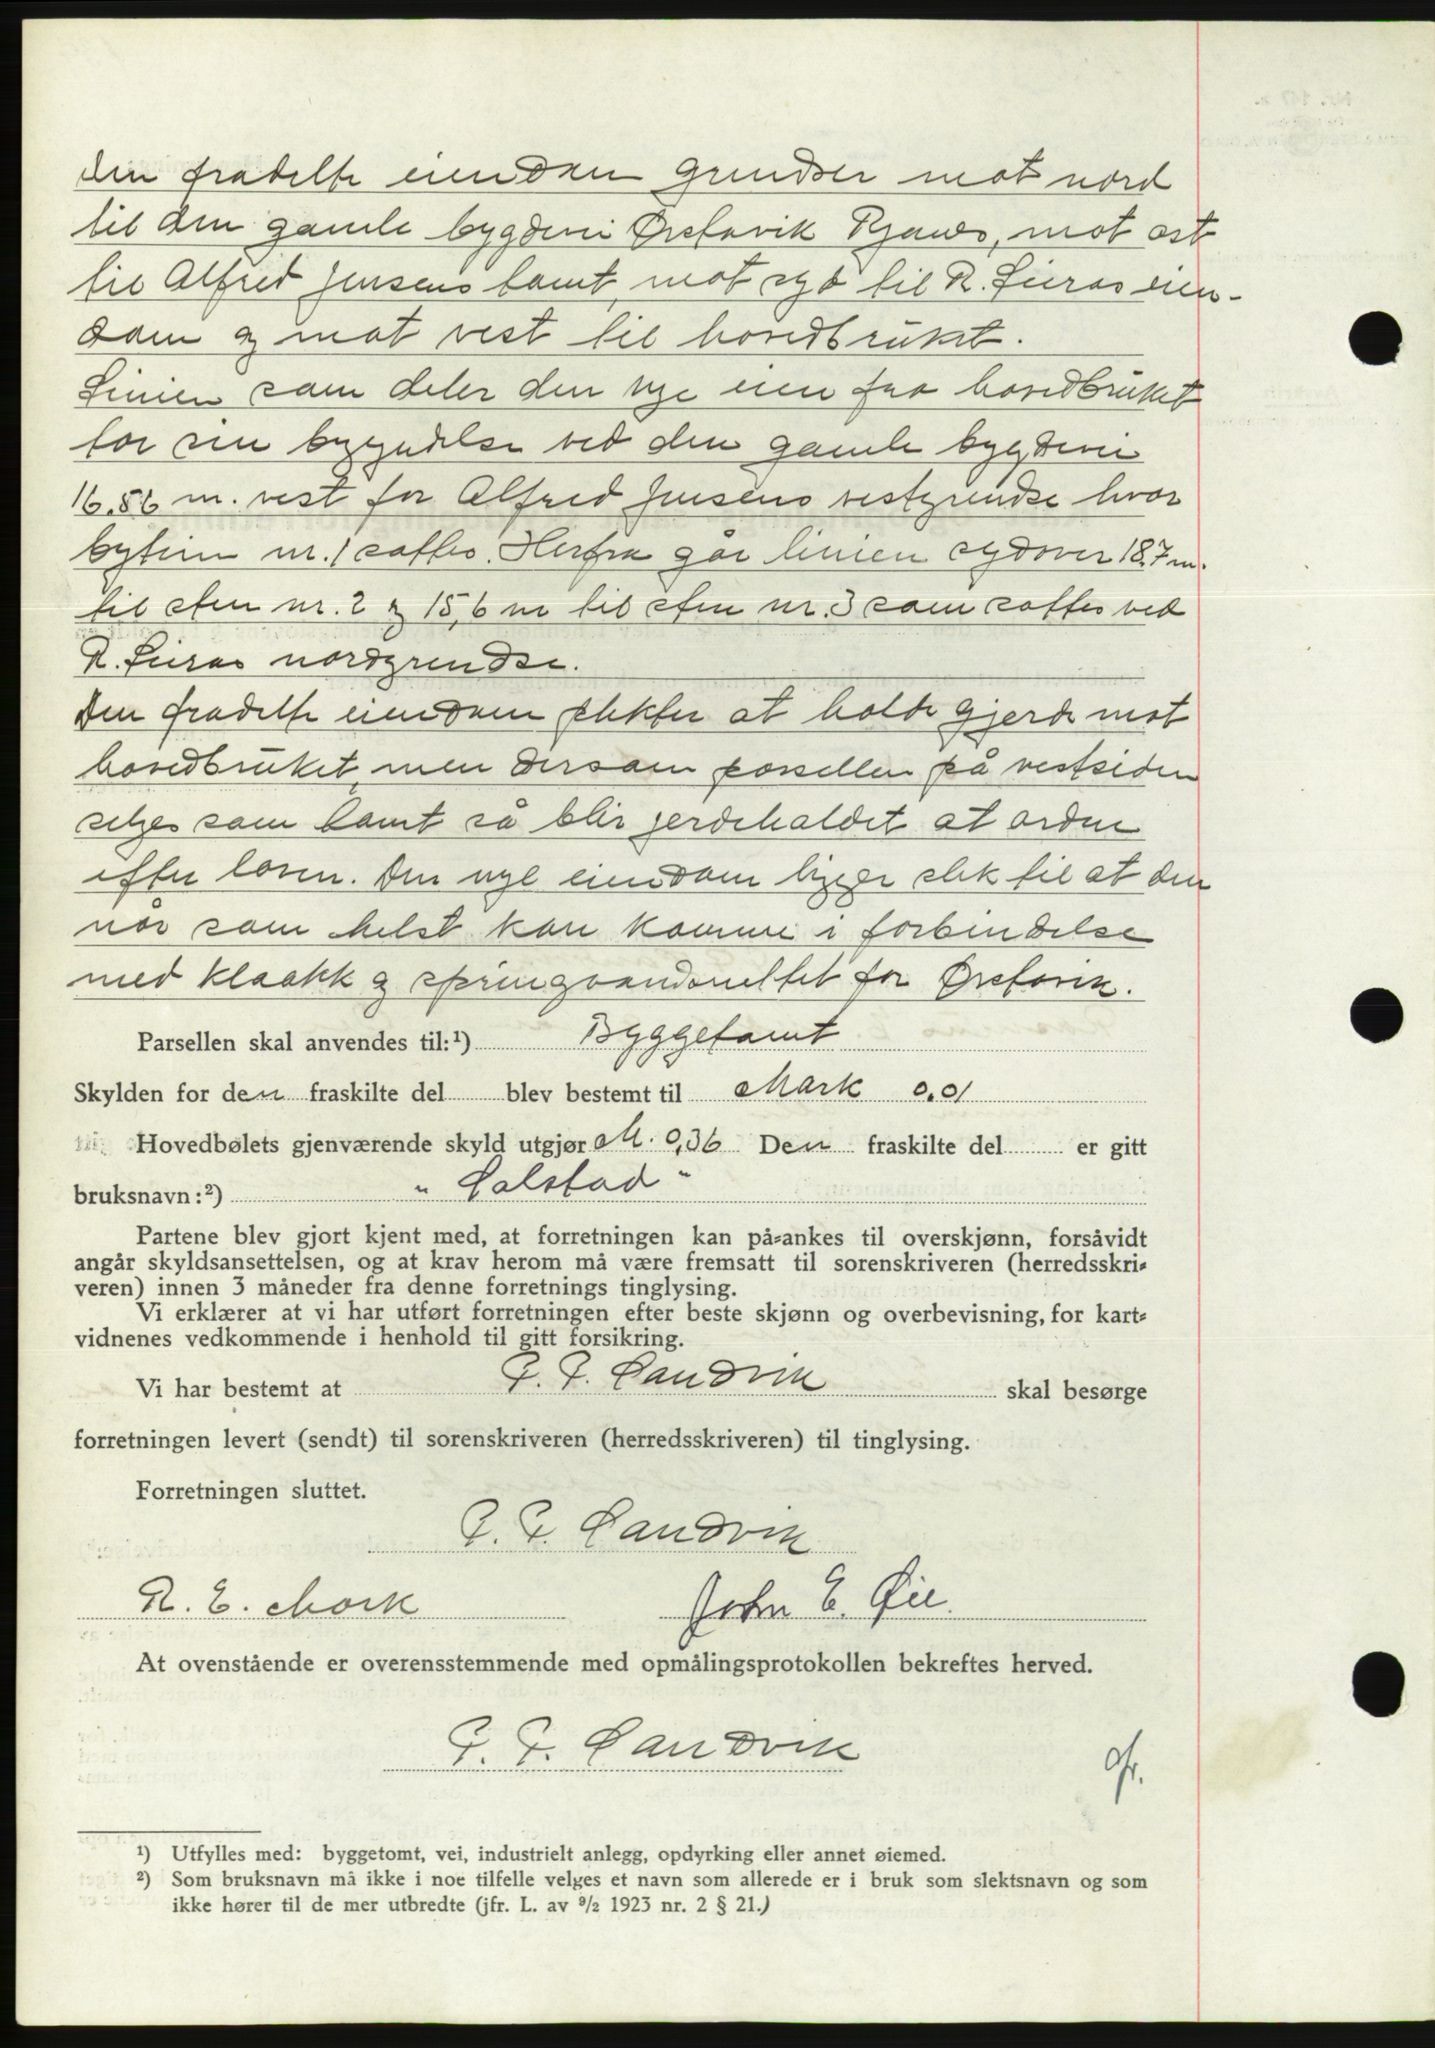 den fradelte eiendom grendser mot nord
til den gamle bygdevei Ørstavik Rjanes, mot øst
til Alfred Jensens tomt, mot syd til R. Leiras eien-
dom og mot vest til hovedbruket.
Linien som deler den nye eien fra hovedbruket
tar sin begyndelse ved den gamle bygdevei
16.56 m. vest for Alfred Jensens vestgrendse hvor
bytein nr. 1 sattes. Herfra går linien sydover 18.7 m.
til sten nr. 2 og 15,6 m til sten nr. 3 som sattes ved
R. Leiras nordgrendse.
Den fradelte eiendom plikter at holde gjerde mot
hovedbruket, men dersom parsellen på vestsiden
selges som tomt så blir jerdeholdet at ordne
efter loven. Den nye eiendom ligger slik til at den
når som helst kan komme i forbindelse
med kloakk og springvandsnettet for Ørstavik.
Parsellen skal anvendes til:¹) Byggetomt
Skylden for den fraskilte del blev bestemt til Mark 0,01
Hovedbølets gjenværende skyld utgjør M. 0,36 Den fraskilte del er gitt
bruksnavn:²) „ Solstad "
Partene blev gjort kjent med, at forretningen kan på-ankes til overskjønn, forsåvidt
angår skyldsansettelsen, og at krav herom må være fremsatt til sorenskriveren (herredsskri-
veren) innen 3 måneder fra denne forretnings tinglysing.
Vi erklærer at vi har utført forretningen efter beste skjønn og overbevisning, for kart-
vidnenes vedkommende i henhold til gitt forsikring.
Vi har bestemt at P. P. Sandvik skal besørge
forretningen levert (sendt) til sorenskriveren (herredsskriveren) til tinglysing.
Forretningen sluttet.
P. P. Sandvik
R. E. Mork John E. Øie.
At ovenstående er overensstemmende med opmålingsprotokollen bekreftes herved.
P. P. Sandvik
¹) Utfylles med: byggetomt, vei, industrielt anlegg, opdyrking eller annet øiemed.
²) Som bruksnavn må ikke i noe tilfelle velges et navn som allerede er i bruk som slektsnavn og som
ikke hører til de mer utbredte (jfr. L. av ⁹/₂ 1923 nr. 2 § 21.)